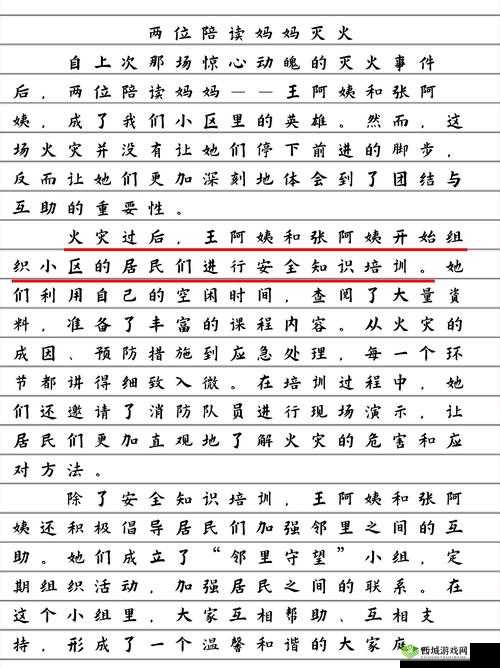 两位陪读妈妈灭火
自上次那场惊心动魄的灭火事件
后，两位陪读妈妈——王阿姨和张阿
姨，成了我们小区里的英雄。然而，这
场火灾并没有让她们停下前进的脚步，
反而让她们更加深刻地体会到了团结与
互助的重要性。
火灾过后，王阿姨和张阿姨开始组
织小区的居民们进行安全知识培训。她
们利用自己的空闲时间，查阅了大量资
料，准备了丰富的课程内容。从火灾的
成因、预防措施到应急处理，每一个环
节都讲得细致入微。在培训过程中，她
们还邀请了消防队员进行现场演示，让
居民们更加直观地了解火灾的危害和应
对方法。
除了安全知识培训，王阿姨和张阿
姨还积极倡导居民们加强邻里之间的互
助。她们成立了“邻里守望”小组，定
期组织活动，加强居民之间的联系。在
这个小组里，大家互相帮助、互相支
持，形成了一个温馨和谐的大家庭
西城游戏网